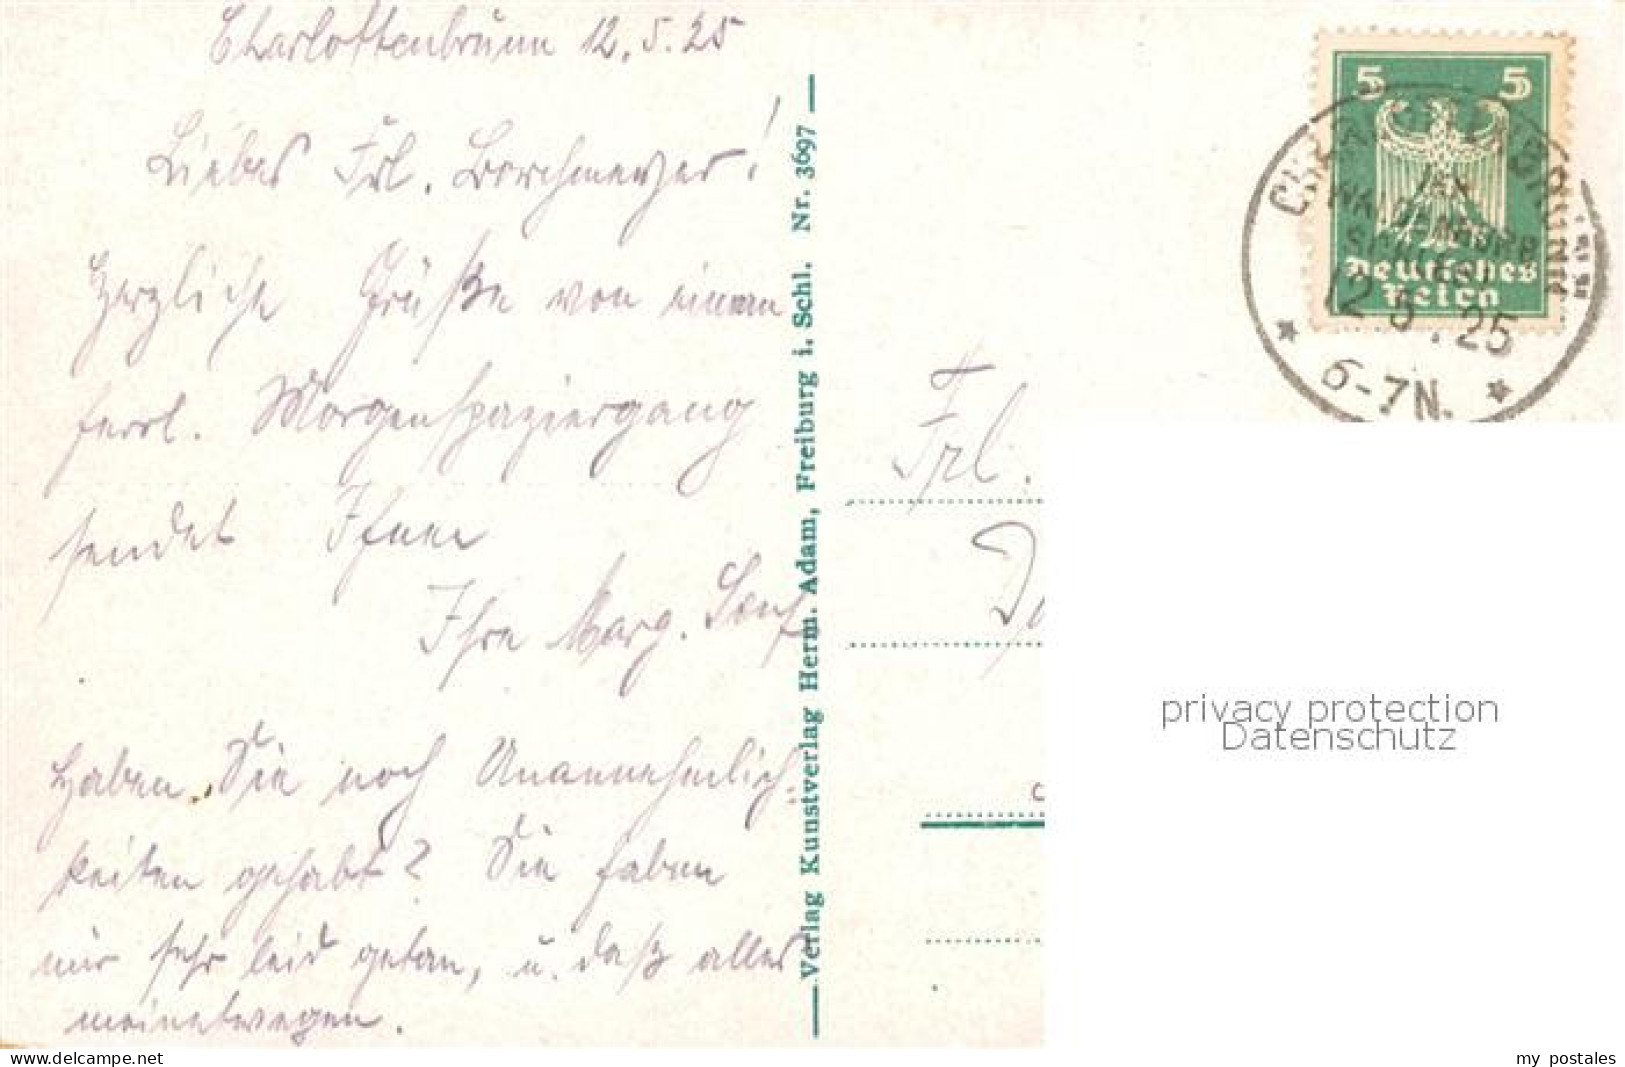 Charlottenbrunn 12.5.25
Liebes Frl. Borchmeyer!
Herzliche Grüße von einem
herrl. Morgenspaziergang
sendet Ihnen
Ihre Marg. Senf
Haben Sie noch Unannehmlich-
keiten gehabt? Sie haben
mir sehr leid getan, u. daß alles
meinetwegen.
Verlag Kunstverlag Herm. Adam, Freiburg i. Schl. Nr. 3697
5 5
Deutsches
Reich
WALDENBURG
12 5.25
6-7N.
Frl.
privacy protection
Datenschutz
www.delcampe.net
my_postales